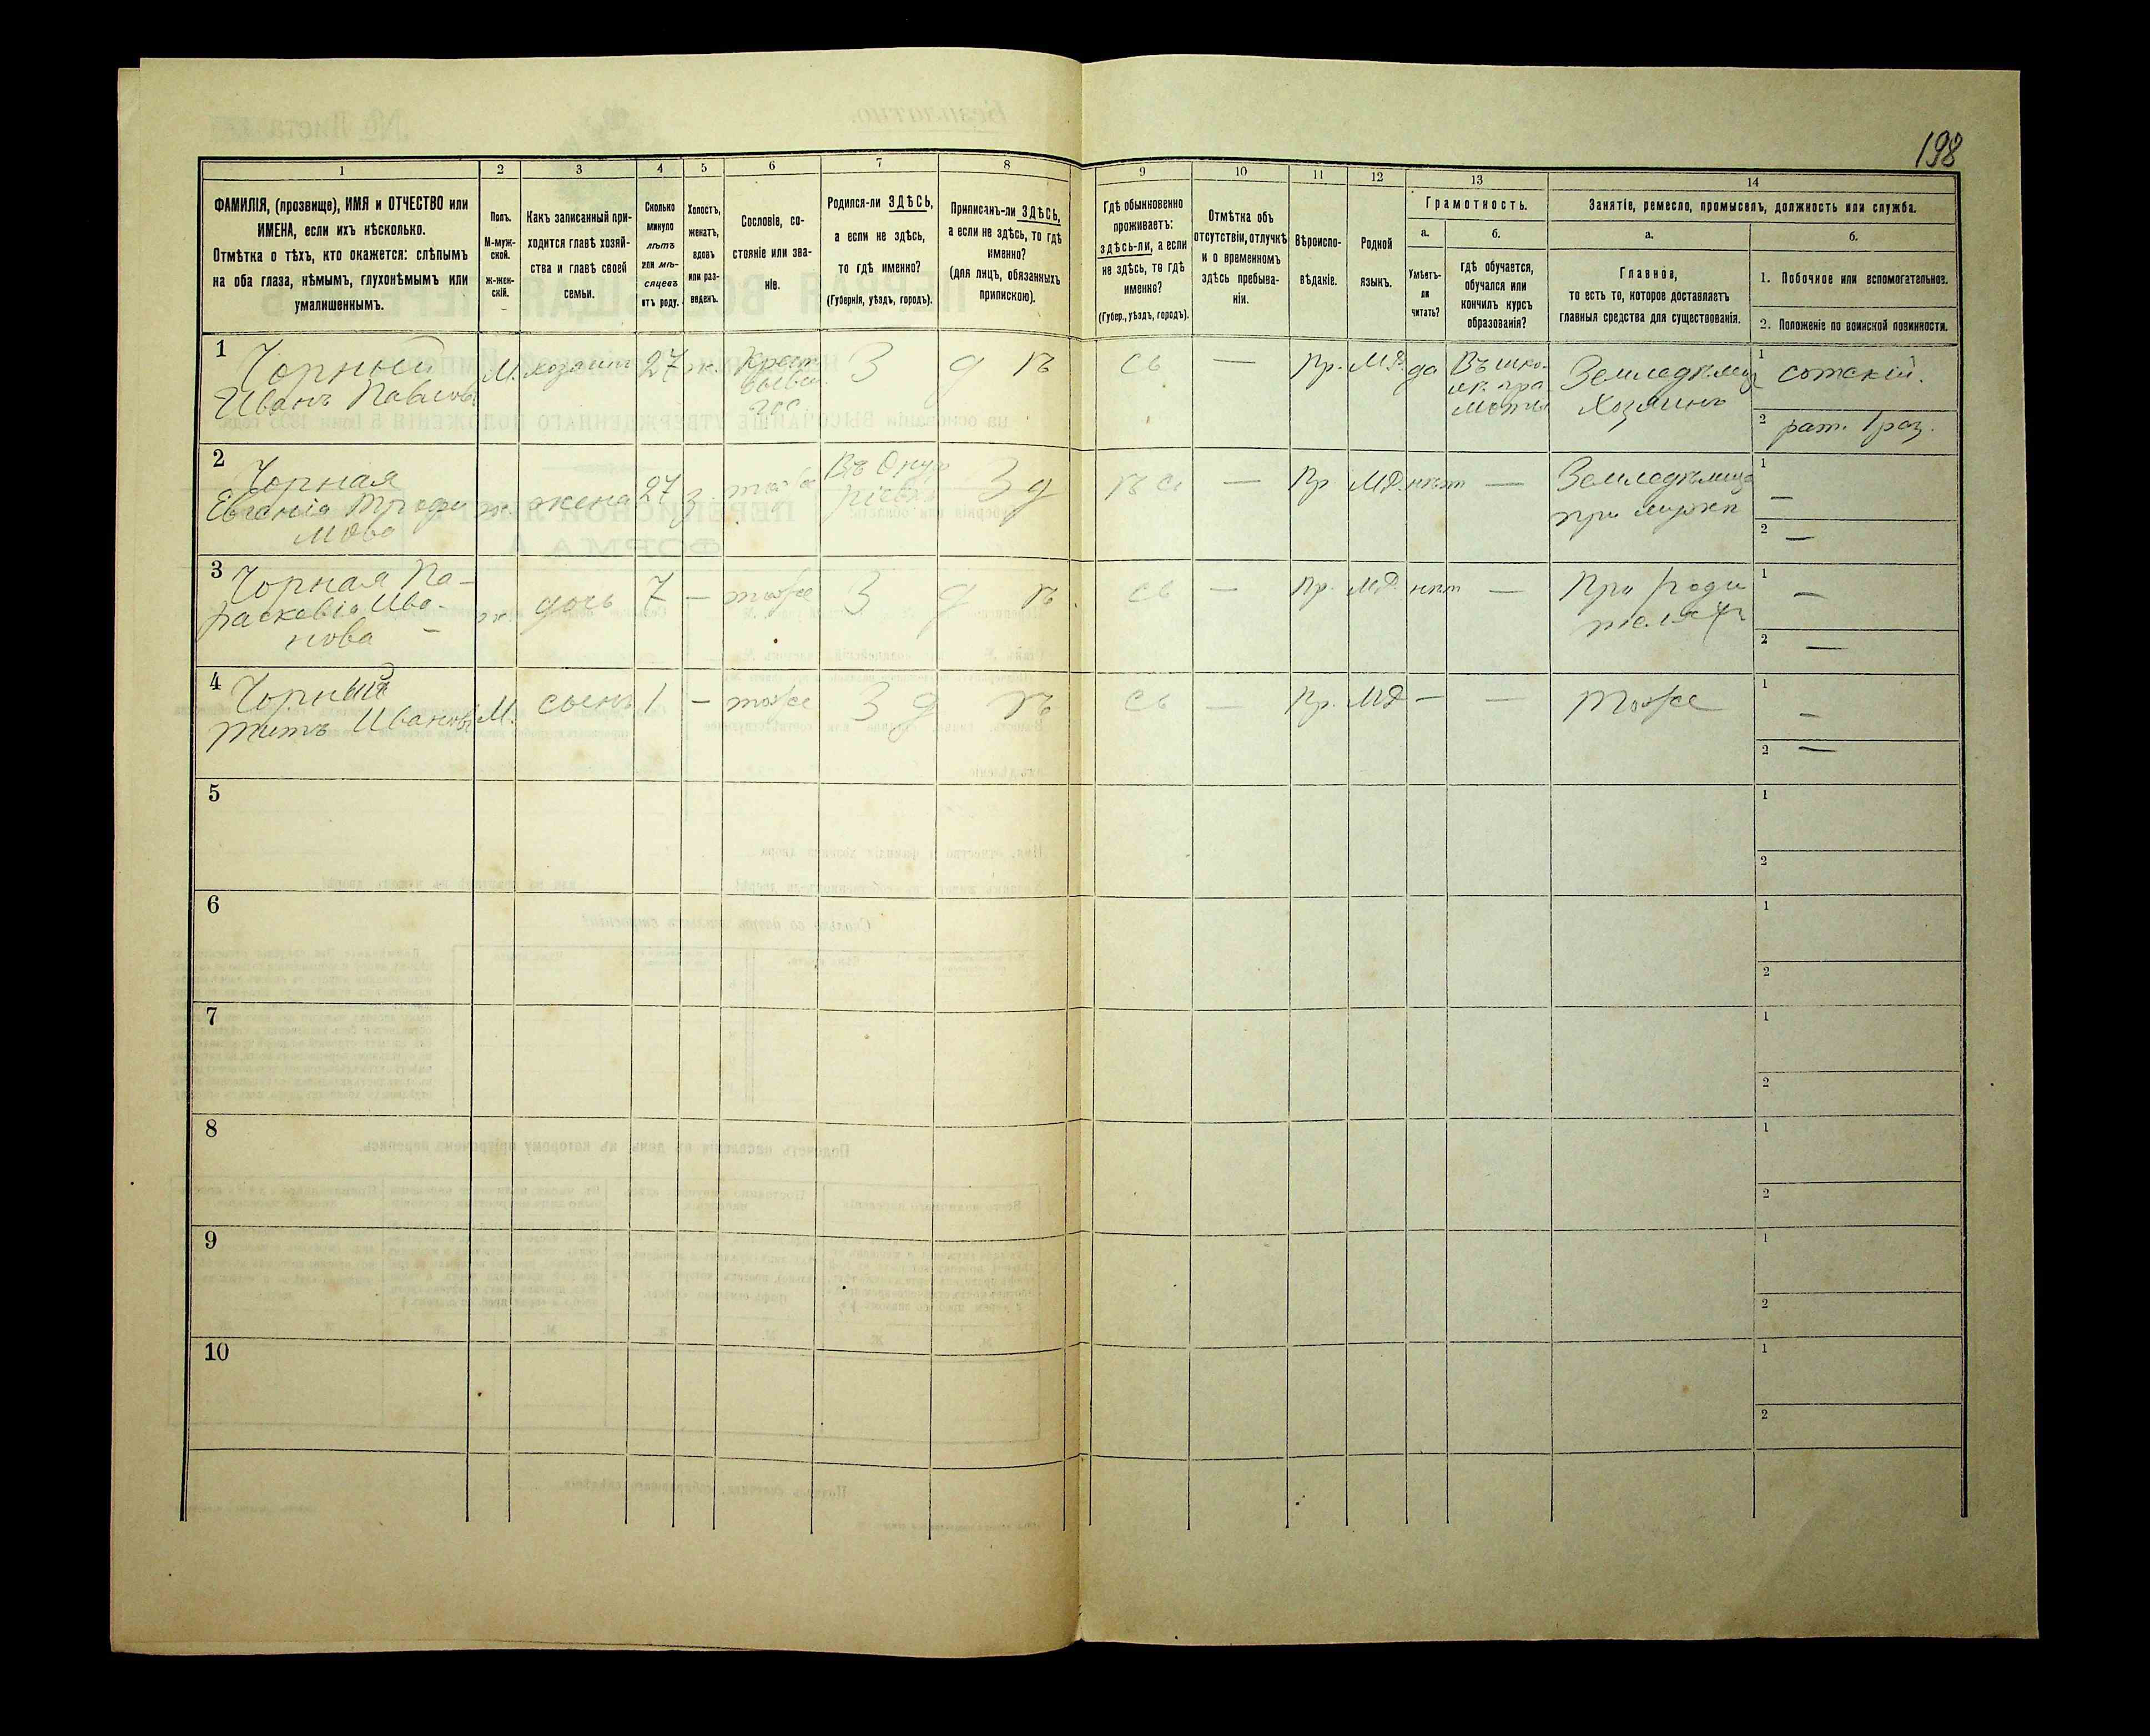 198
1
2
3
4
5
6
7
8
9
10
11
12
13
14
ФАМИЛІЯ, (прозвище), ИМЯ и ОТЧЕСТВО или
ИМЕНА, если ихъ нѣсколько.
Отмѣтка о тѣхъ, кто окажется: слѣпымъ
на оба глаза, нѣмымъ, глухонѣмымъ или
умалишеннымъ.
Полъ.
М-муж-
ской.
ж-жен-
скій.
Какъ записанный при-
ходится главѣ хозяй-
ства и главѣ своей
семьи.
Сколько
минуло
лѣтъ
или мѣ-
сяцевъ
отъ роду.
Холостъ,
женатъ,
вдовъ
или раз-
веденъ.
Сословіе, со-
стояніе или зва-
ніе.
Родился-ли ЗДѢСЬ,
а если не здѣсь,
то гдѣ именно?
(Губернія, уѣздъ, городъ).
Приписанъ-ли ЗДѢСЬ,
а если не здѣсь, то гдѣ
именно?
(для лицъ, обязанныхъ
припискою).
Гдѣ обыкновенно
проживаетъ:
здѣсь-ли, а если
не здѣсь, то гдѣ
именно?
(Губер., уѣздъ, городъ).
Отмѣтка объ
отсутствіи, отлучкѣ
и о временномъ
здѣсь пребыва-
ніи.
Вѣроиспо-
вѣданіе.
Родной
языкъ.
Грамотность.
а.
б.
Умѣетъ-
ли
читать?
гдѣ обучается,
обучался или
кончилъ курсъ
образованія?
Занятіе, ремесло, промыселъ, должность или служба.
а.
б.
Главное,
то есть то, которое доставляетъ
главныя средства для существованія.
1. Побочное или вспомогательное.
2. Положеніе по воинской повинности.
1
Чорный
Иванъ Павловъ
М.
хозаин
27
ж.
Крест
З д ѣ сь
—
Пр.
М.Р.
да
Въ шко-
лѣ гра
моты
Земледѣлец
Хозяинъ
1 сотскій.
2 рат. 1 раз.
2
Чорная
Евгенія Трофи
мова
ж.
жена
27
З.
Въ Онуф
ріевкѣ
З д ѣ сь
—
Пр
М.Р.
нѣт
—
Земледѣлица
при мужѣ
1 —
2 —
3
Чорная Па-
раскевіа Ива-
нова —
ж.
дочь
7
—
тоже
З д ѣ сь
—
Пр.
М.Р.
нѣт
—
При роди
теляхъ
1 —
2 —
4
Чорный
Титъ Ивановъ
М.
сынъ
1
—
тоже
З д ѣ сь
—
Пр.
МР
—
—
Тоже
1 —
2 —
5
1
2
6
1
2
7
1
2
8
1
2
9
1
2
10
1
2